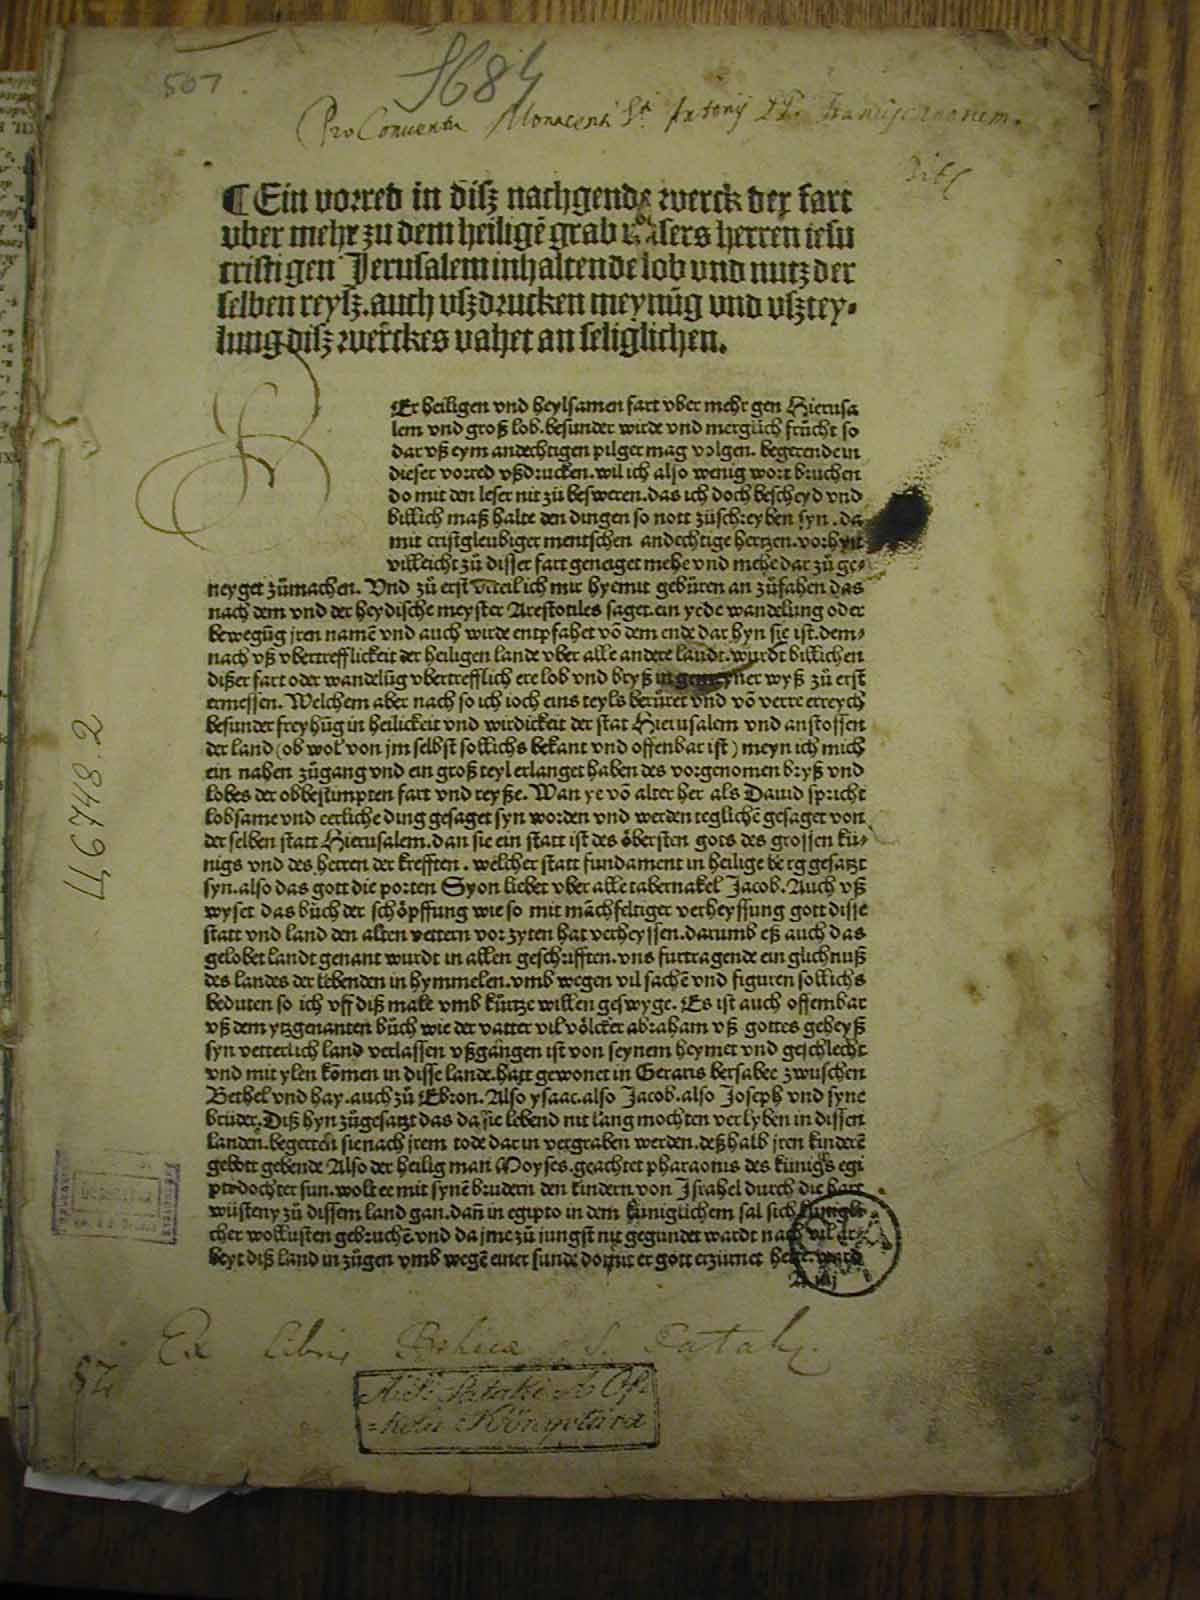 507
S684
Pro Conventu Monacensi Sti Antonij PP. Franciscanorum.
¶ Ein vorred in disz nachgende werck der fart
vber mehr zu dem heiligē grab vnsers herren iesu
cristi gen Jerusalem inhaltende lob vnd nutz der
selben reysz. auch vszdrucken meynūg vnd vsztey-
lung disz werckes vahet an seliglichen.
Er heiligen vnd heylsamen fart vber mehr gen Hierusa
lem vnd groß lob. besunder wirde vnd merglich frücht so
dar vß eym andechtigen pilger mag volgen. begerende in
dieser vorred vßdrucken. wil ich also wenig wort bruchen
do mit den leser nit zů besweren. das ich doch bescheyd vnd
billich maß halte den dingen so nott zůschreyben syn. da
mit cristgleubiger mentschen andechtige hertzen. vorhyn
villeicht zů disser fart geneiget mehe vnd mehe dar zů ge-
neyget zůmachen. Vnd zů erst vrteil ich mir hyemit gebüren an zůfahen das
nach dem vnd der heydische meyster Arestotiles saget. ein yede wandelūng oder
bewegūg jren namē vnd auch wirde entpfahet vō dem ende dar hyn sie ist. dem-
nach vß vbertrefflickeit der heiligen lande vber alle andere landt. wurdt billichen
dißer fart oder wandelūg vbertrefflich ere lob vnd bryß in gemeyner wyß zů erst
ermessen. Welchem aber nach so ich ioch eins teyls berüret vnd vō verre erreych
besunder freyhūg in heilickeit vnd wirdickeit der stat Hierusalem vnd anstossen
der land (ob wol von jm selbst sollichs bekant vnd offenbar ist) meyn ich mich
ein nahen zůgang vnd ein groß teyl erlanget haben des vorgenomen bryß vnd
lobes der obbestimpten fart vnd reyße. Wan ye vō alter her als Dauid spricht
lobsame vnd eerliche ding gesaget syn worden vnd werden teglichē gesaget von
der selben statt Hierusalem. dan sie ein statt ist des öbersten gots des grossen kü-
nigs vnd des herren der krefften. welcher statt fundament in heilige berg gesatzt
syn. also das gott die porten Syon liebet vber alle tabernakel Jacob. Auch vß
wyset das bůch der schöpffung wie so mit māchfeltiger verheyssung gott disse
statt vnd land den alten vettern vor zyten hat verheyssen. darumb eß auch das
gelobet landt genant wurdt in allen geschrifften. vns furtragende ein glichnuß
des landes der lebenden in hymmelen. vmb wegen vil sachē vnd figuren sollichs
beduten so ich vff diß male vmb kürtze willen geswyge. Es ist auch offembar
vß dem ytzgenanten bůch wie der vatter vil völcker abraham vß gottes geheyß
syn vetterlich land verlassen vßgangen ist von seynem heymet vnd geschlecht
vnd mit ylen kōmen in disse lande. hatt gewonet in Geraris bersabee zwuschen
Bethel vnd hay. auch zů Ebron. Also ysaac. also Jacob. also Joseph vnd syne
brüder. Diß hyn zůgesatzt das da sie lebend nit lang mochten verlyben in dissen
landen. begerten sie nach jrem tode dar in vergraben werden. deßhalb jren kinderē
gebott gebende Also der heilig man Moyses. geachtet pharaonis des künigs egi
pte dochter sun. wolt ee mit synē brudern den kindern von Jsrahel durch die hart
wüsteny zů dissem land gan. dañ in egipto in dem küniglichem sal sich künigli
cher wollusten gebruchē vnd da jme zů jungst nit gegundet wardt nach vil ar-
beyt diß land in zůgen vmb wegē einer sunde domit er gott erzürnet hette. ward
A iij
Ex Libris S. Pataky.
A S. Pataki
Könyvtára
4,6748.2